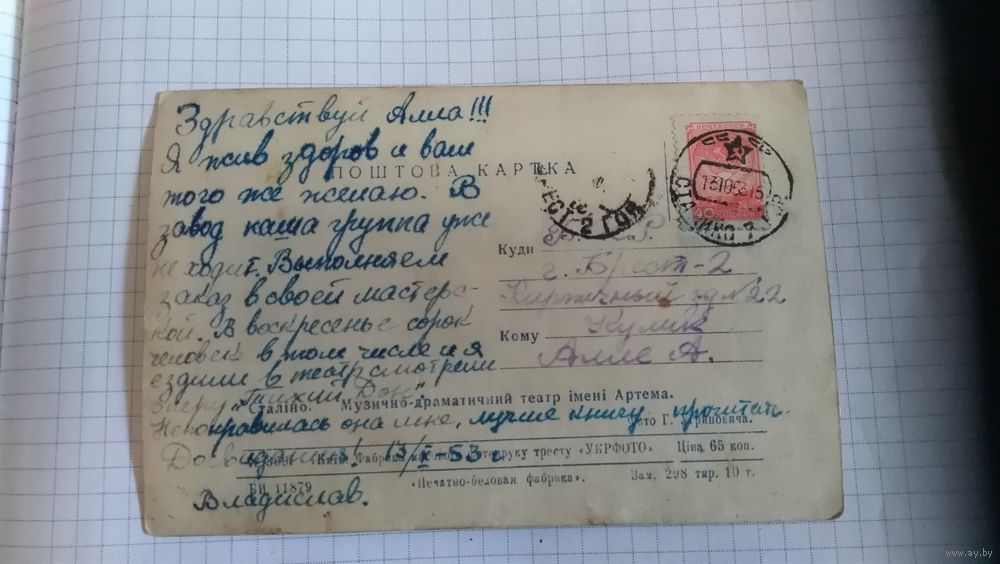 Здравствуй Алла!!!
Я жив здоров и вам
того же желаю. В
завод наша группа уже
не ходит. Выполняем
заказ в своей мастерс-
кой. В воскресенье сорок
человек в том числе и я
ездили в театр смотрели
оперу "Тихий Дон".
Непонравилась она мне, лучше книгу прочитать.
Досвидания! 13/I 53 г
Владислав.
ПОШТОВА КАРТКА
ПОЧТА СССР
40
2
Куди
г. Брест-2
Кирпичный
Кому Кулик
Алле А.
Сталіно. Музично-драматичний театр імені Артема.
Фото Г.
Київ. Фабрика тресту «УКРФОТО». Ціна 65 коп.
БИ 11879 «Печатно-беловая фабрика». Зам. 298 тир. 10 т.
www.ay.by